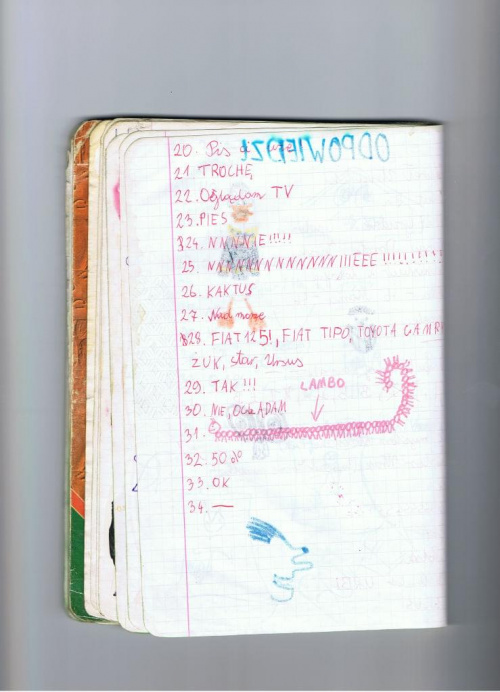 ODPOWIEDZI
20. Pis
21 TROCHĘ
22. Oglądam TV
23. PIES
24. NNNNIE!!!!!
25. NNNNNNNNNNNNNIIIEEE !!!!!!!!!
26. KAKTUS
27. Nad morze
28. FIAT 125!, FIAT TIPO, TOYOTA CAMRI
ŻUK, Star, Ursus
29. TAK !!!
LAMBO
30. NIE, ADAM
31.
32. 50
33. OK
34. —